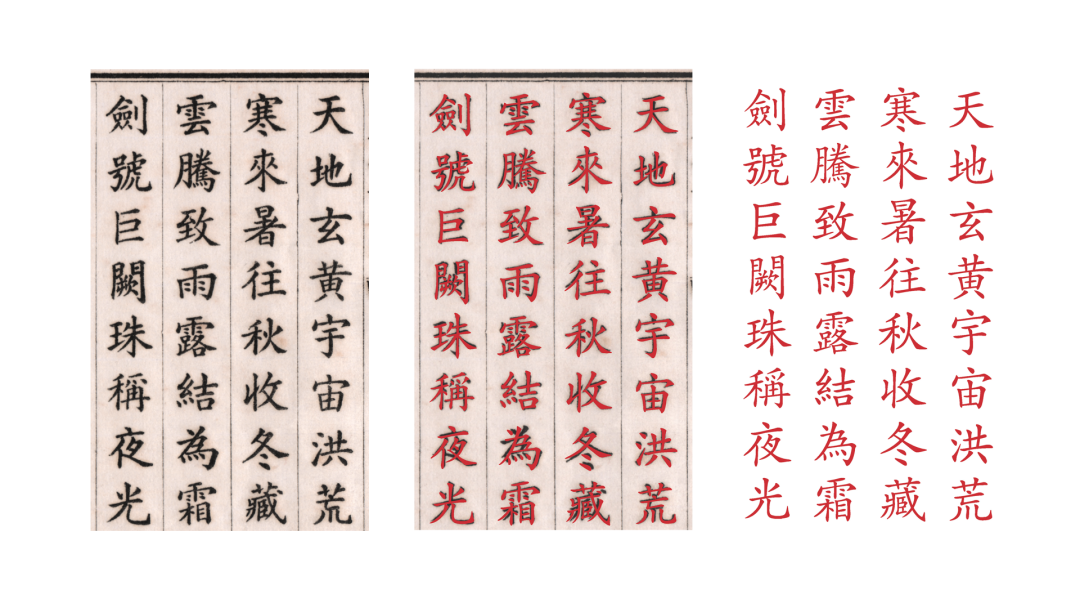 天地玄黄宇宙洪荒
寒來暑往秋收冬藏
雲騰致雨露結為霜
劍號巨闕珠稱夜光
天地玄黄宇宙洪荒
寒來暑往秋收冬藏
雲騰致雨露結為霜
劍號巨闕珠稱夜光
天地玄黄宇宙洪荒
寒來暑往秋收冬藏
雲騰致雨露結為霜
劍號巨闕珠稱夜光